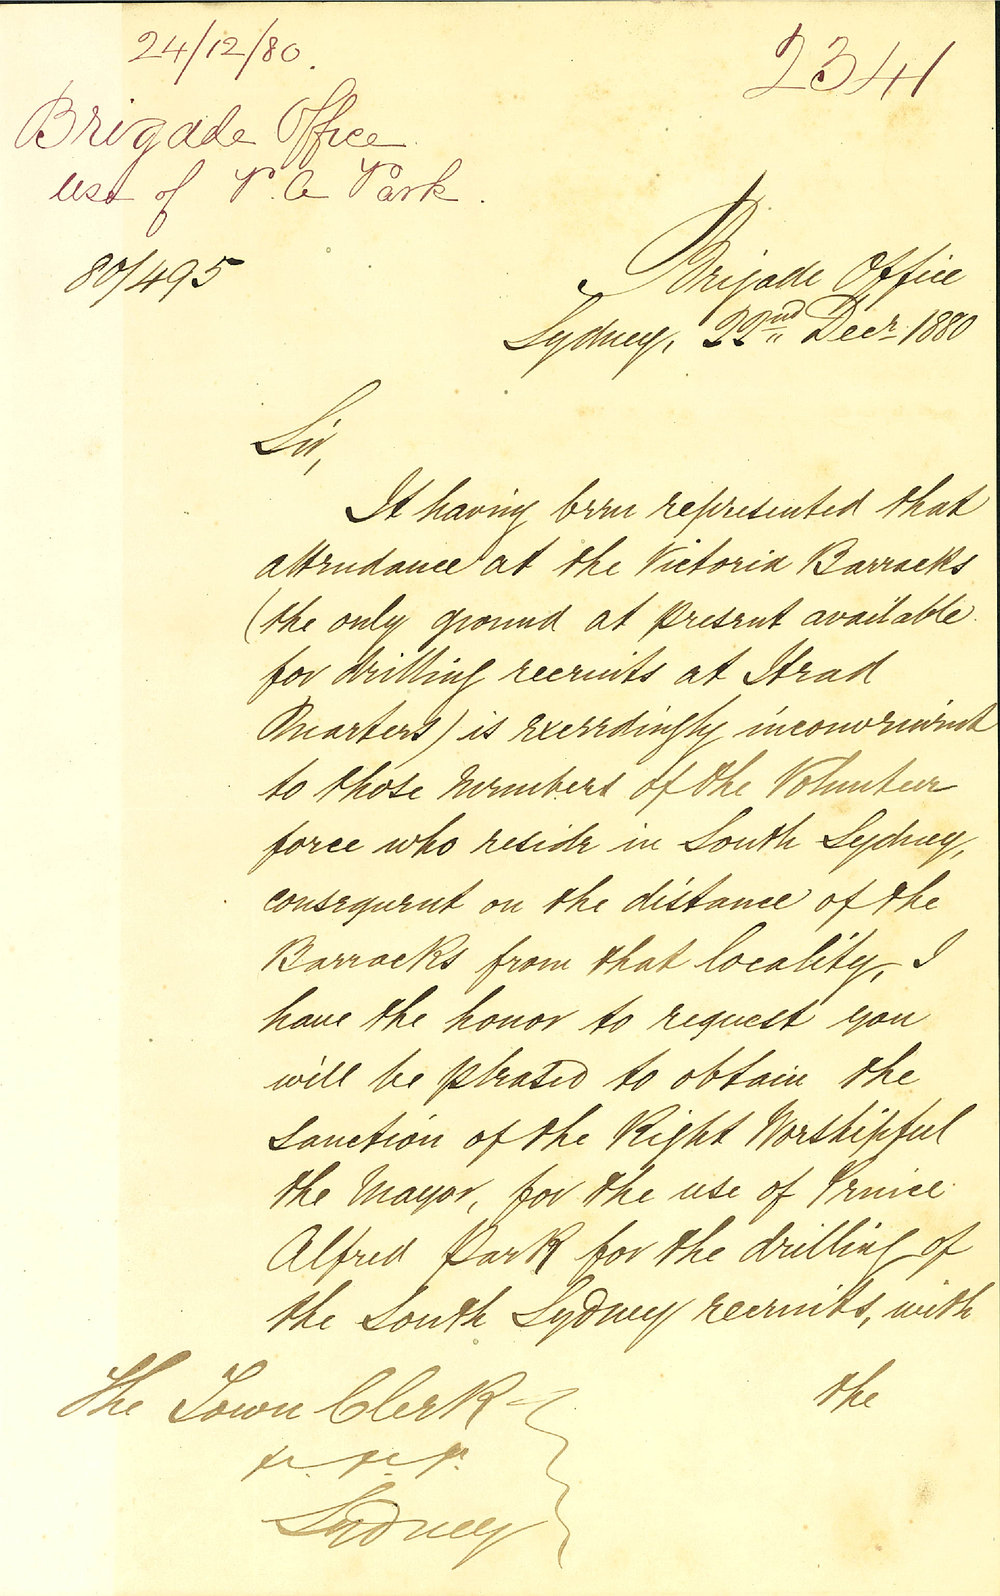 24/12/80.
2341
Brigade Office
Use of P.A Park.
80/495
Brigade Office
Sydney, 22nd Decr. 1880
Sir,
It having been represented that
attendance at the Victoria Barracks
(the only ground at present available
for drilling recruits at Head
Quarters) is exceedingly inconvenient
to those Members of the Volunteer
force who reside in South Sydney,
consequent on the distance of the
Barracks from that locality, I
have the honor to request you
will be pleased to obtain the
sanction of the Right Worshipful
the Mayor, for the use of Prince
Alfred Park for the drilling of
the South Sydney recruits, with
the
The Town Clerk
&c. &c. &c.
Sydney